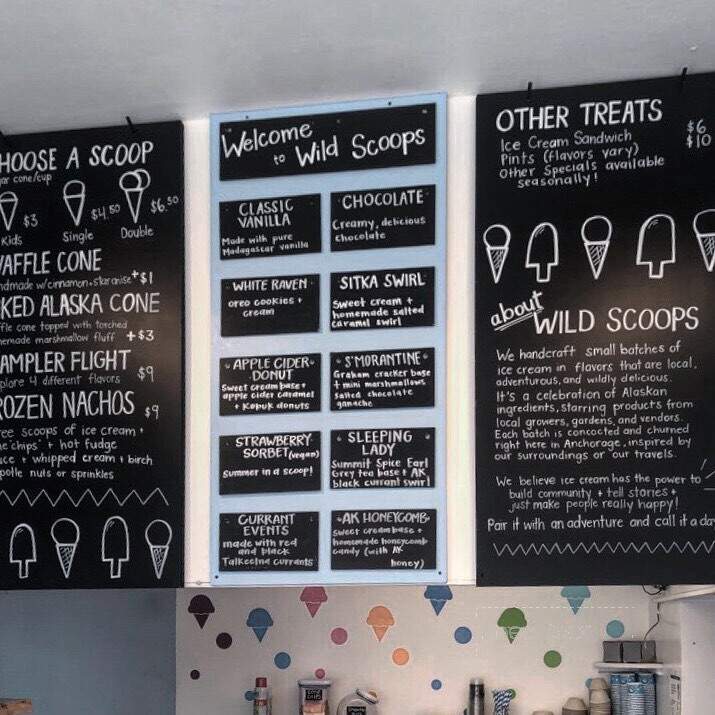 HOOSE A SCOOP
ar cone/cup
$3
$4.50
$6.50
Kids
Single
Double
AFFLE CONE
ndmade w/cinnamon+star anise +$1
KED ALASKA CONE
fle cone topped with torched
emade marshmallow fluff +$3
AMPLER FLIGHT
plore 4 different flavors $9
ROZEN NACHOS $9
ree scoops of ice cream +
e "chips" + hot fudge
uce + whipped cream + birch
potle nuts or sprinkles
Welcome
to Wild Scoops
CLASSIC
VANILLA
Made with pure
Madagascar vanilla
CHOCOLATE
Creamy, delicious
chocolate
WHITE RAVEN
oreo cookies +
cream
SITKA SWIRL
Sweet cream +
homemade salted
caramel swirl
APPLE CIDER
DONUT
Sweet cream base +
apple cider caramel
+ Kopuk donuts
S'MORANTINE
Graham cracker base
+ mini marshmallows
salted chocolate
ganache
STRAWBERRY
SORBET (vegan)
Summer in a scoop!
SLEEPING
LADY
Summit Spice Earl
Grey tea base + AK
black currant swirl
CURRANT
EVENTS
made with red
and black
Talkeetna currants
AK HONEYCOMB
Sweet cream base +
homemade honeycomb
candy (with AK
honey)
OTHER TREATS
Ice Cream Sandwich $6
Pints (flavors vary) $10
Other Specials available
seasonally!
about
WILD SCOOPS
We handcraft small batches of
ice cream in flavors that are local,
adventurous, and wildly delicious.
It's a celebration of Alaskan
ingredients, starring products from
local growers, gardens, and vendors.
Each batch is concocted and churned
right here in Anchorage, inspired by
our surroundings or our travels.
We believe ice cream has the power to
build community + tell stories +
just make people really happy!
Pair it with an adventure and call it a da